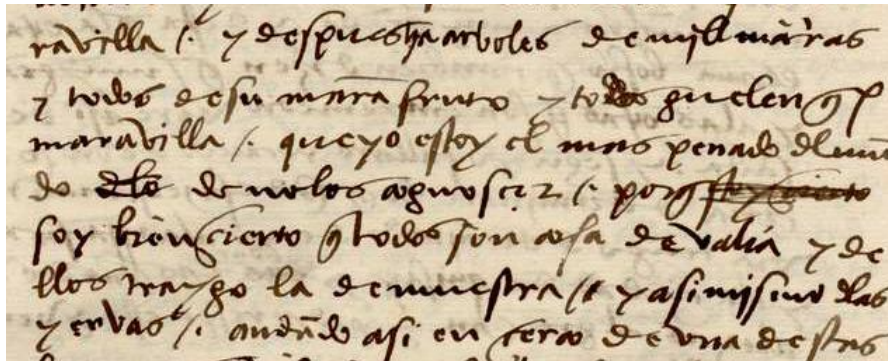 ravilla /. y despues ha arboles de mill man̄ras
y todos de su man̄ra fruto y todos guelen q̄ es
maravilla /. que yo estoy el mas penado del mun̄
do de no los cognosçer /. porq̄
soy bien çierto q̄ todos son cosa de valia y de
llos traygo la demuestra /. y asimismo de las
yervas /. andādo asi en çerco de vna destas